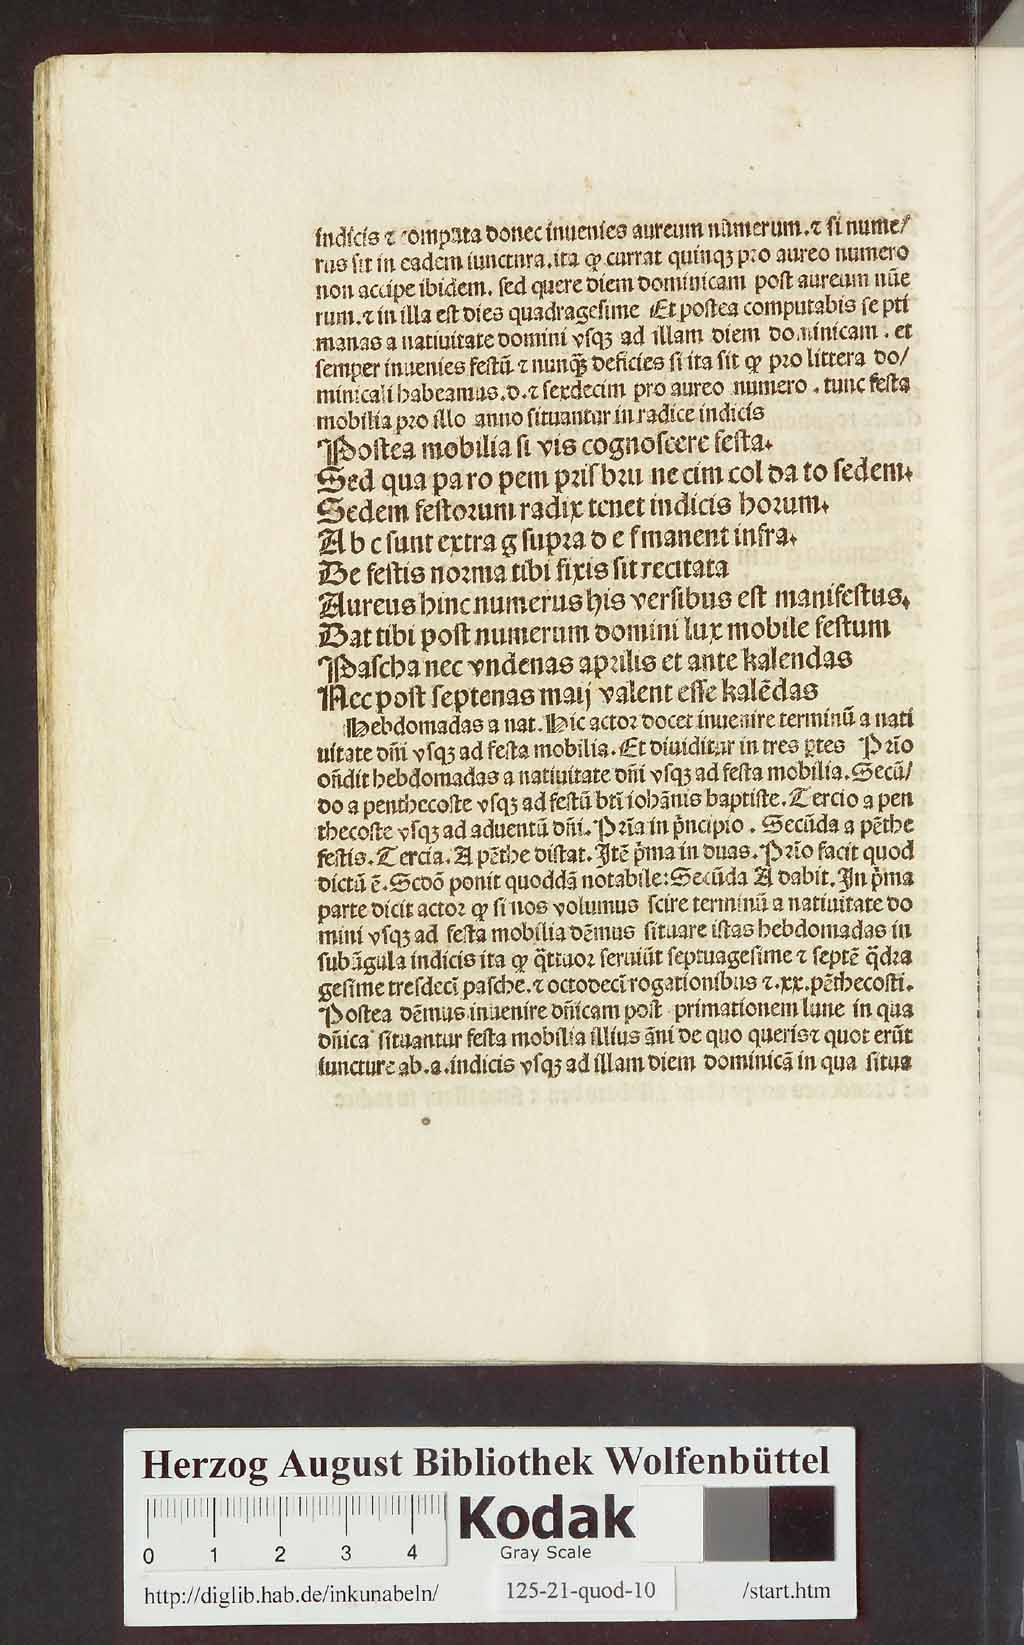 indicis ⁊ computa donec inuenies aureum numerum. ⁊ si nume/
rus sit in eadem iunctura. ita ꝙ currat quinqꝫ pro aureo numero
non accipe ibidem. sed quere diem dominicam post aureum nūe
rum. ⁊ in illa est dies quadragesime Et postea computabis septi
manas a natiuitate domini vsqꝫ ad illam diem dominicam. et
semper inuenies festū ⁊ nunqꝫ̄ deficies si ita sit ꝙ pro littera do/
minicali habeamus. d. ⁊ sexdecim pro aureo numero. tunc festa
mobilia pro illo anno situantur in radice indicis
Postea mobilia si vis cognoscere festa.
Sed qua pa ro pem pris bru ne cim col da to sedem.
Sedem festorum radix tenet indicis horum.
A b c sunt extra g supra d e f manent infra.
De festis norma tibi fixis sit recitata
Aureus hinc numerus his versibus est manifestus.
Dat tibi post numerum domini lux mobile festum
Pascha nec vndenas aprilis et ante kalendas
Nec post septenas maij valent esse kalēdas
Hebdomadas a nat. Hic actor docet inuenire terminū a nati
uitate dn̄i vsqꝫ ad festa mobilia. Et diuiditur in tres ꝑtes Prīo
on̄dit hebdomadas a natiuitate dn̄i vsqꝫ ad festa mobilia. Secū/
do a penthecoste vsqꝫ ad festū btī iohānis baptiste. Tercio a pen
thecoste vsqꝫ ad aduentū dn̄i. Prīa in p̄ncipio. Secūda a pēthe
festis. Tercia. A pēthe distat. Itē p̄ma in duas. Prīo facit quod
dictū ē. Scdō ponit quoddā notabile: Secūda A dabit. In p̄ma
parte dicit actor ꝙ si nos volumus scire terminū a natiuitate do
mini vsqꝫ ad festa mobilia dēmus situare istas hebdomadas in
subāgula indicis ita ꝙ q̄ttuor seruiūt septuagesime ⁊ septē q̄dra
gesime tresdecī pasche. ⁊ octodecī rogationibus ⁊. xx. pēthecosti.
Postea dēmus inuenire dn̄icam post primationem lune in qua
dn̄ica situantur festa mobilia illius āni de quo queris⁊ quot erūt
iuncture ab. a. indicis vsqꝫ ad illam diem dominicā in qua situa
Herzog August Bibliothek Wolfenbüttel
Kodak
Gray Scale
0 1 2 3 4
http://diglib.hab.de/inkunabeln/ 125-21-quod-10 /start.htm